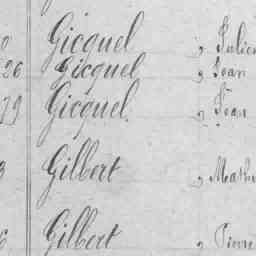 Gicquel , Julien
26 Gicquel , Jean
79 Gicquel , Jean
Gilbert , Math
Gilbert , Pierre